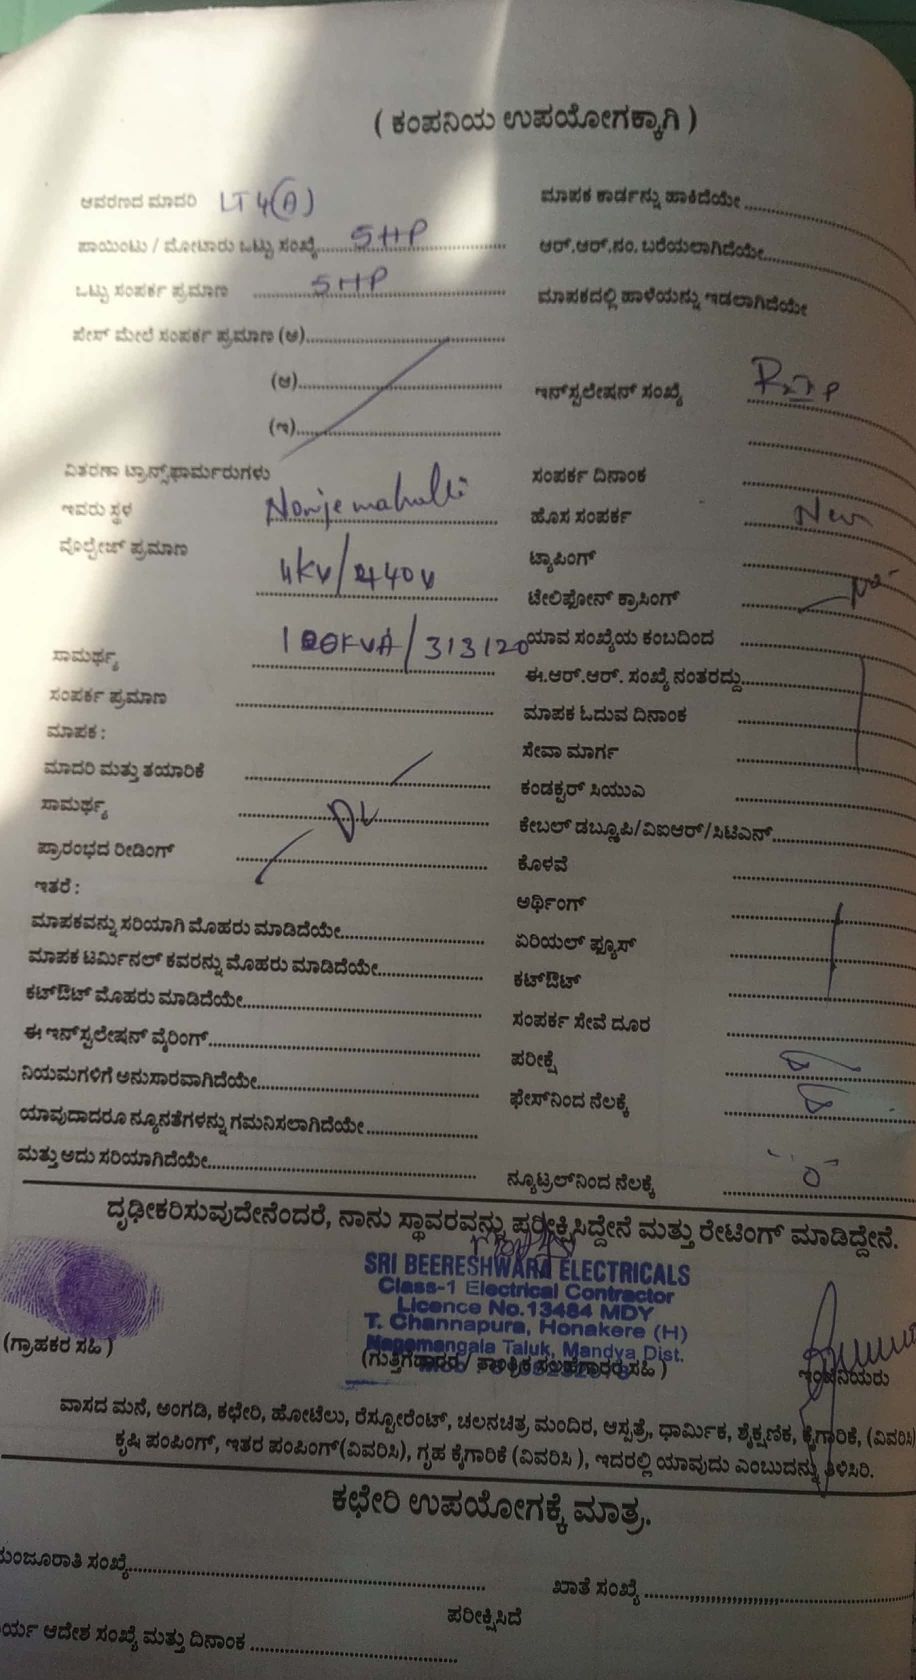 ( ಕಂಪನಿಯ ಉಪಯೋಗಕ್ಕಾಗಿ )
ಆವರಣದ ಮಾದರಿ LT4(A)
ಪಾಯಿಂಟು / ಮೋಟಾರು ಒಟ್ಟು ಸಂಖ್ಯೆ 5HP
ಒಟ್ಟು ಸಂಪರ್ಕ ಪ್ರಮಾಣ 5HP
ಫೇಸ್ ಮೇಲೆ ಸಂಪರ್ಕ ಪ್ರಮಾಣ (ಅ)
(ಆ)
(ಇ)
ವಿತರಣಾ ಟ್ರಾನ್ಸ್‌ಫಾರ್ಮರುಗಳು
ಇವರು ಸ್ಥಳ
ವೊಲ್ಟೇಜ್ ಪ್ರಮಾಣ
ಸಾಮರ್ಥ್ಯ
ಸಂಪರ್ಕ ಪ್ರಮಾಣ
ಮಾಪಕ :
ಮಾದರಿ ಮತ್ತು ತಯಾರಿಕೆ
ಸಾಮರ್ಥ್ಯ
ಪ್ರಾರಂಭದ ರೀಡಿಂಗ್
ಇತರೆ :
ಮಾಪಕವನ್ನು ಸರಿಯಾಗಿ ಮೊಹರು ಮಾಡಿದೆಯೇ
ಮಾಪಕ ಟರ್ಮಿನಲ್ ಕವರನ್ನು ಮೊಹರು ಮಾಡಿದೆಯೇ
ಕಟ್‌ಔಟ್ ಮೊಹರು ಮಾಡಿದೆಯೇ
ಈ ಇನ್‌ಸ್ಟಲೇಷನ್ ವೈರಿಂಗ್
ನಿಯಮಗಳಿಗೆ ಅನುಸಾರವಾಗಿದೆಯೇ
ಯಾವುದಾದರೂ ನ್ಯೂನತೆಗಳನ್ನು ಗಮನಿಸಲಾಗಿದೆಯೇ
ಮತ್ತು ಅದು ಸರಿಯಾಗಿದೆಯೇ
ಮಾಪಕ ಕಾರ್ಡನ್ನು ಹಾಕಿದೆಯೇ
ಆರ್.ಆರ್.ನಂ. ಬರೆಯಲಾಗಿದೆಯೇ
ಮಾಪಕದಲ್ಲಿ ಹಾಳೆಯನ್ನು ಇಡಲಾಗಿದೆಯೇ
ಇನ್‌ಸ್ಟಲೇಷನ್ ಸಂಖ್ಯೆ
ಸಂಪರ್ಕ ದಿನಾಂಕ
ಹೊಸ ಸಂಪರ್ಕ New
ಟ್ಯಾಪಿಂಗ್
ಟೇಲಿಫೋನ್ ಕ್ರಾಸಿಂಗ್
ಯಾವ ಸಂಖ್ಯೆಯ ಕಂಬದಿಂದ
ಈ.ಆರ್.ಆರ್. ಸಂಖ್ಯೆ ನಂತರದ್ದು
ಮಾಪಕ ಓದುವ ದಿನಾಂಕ
ಸೇವಾ ಮಾರ್ಗ
ಕಂಡಕ್ಟರ್ ಸಿಯುಎ
ಕೇಬಲ್ ಡಬ್ಲ್ಯೂಪಿ/ವಿಐಆರ್/ಸಿಟಿಎನ್
ಕೊಳವೆ
ಅರ್ಥಿಂಗ್
ಏರಿಯಲ್ ಫ್ಯೂಸ್
ಕಟ್‌ಔಟ್
ಸಂಪರ್ಕ ಸೇವೆ ದೂರ
ಪರೀಕ್ಷೆ
ಫೇಸ್‌ನಿಂದ ನೆಲಕ್ಕೆ
ನ್ಯೂಟ್ರಲ್‌ನಿಂದ ನೆಲಕ್ಕೆ
ದೃಢೀಕರಿಸುವುದೇನೆಂದರೆ, ನಾನು ಸ್ಥಾವರವನ್ನು ಪರೀಕ್ಷಿಸಿದ್ದೇನೆ ಮತ್ತು ರೇಟಿಂಗ್ ಮಾಡಿದ್ದೇನೆ.
SRI BEERESHWARA ELECTRICALS
Class-1 Electrical Contractor
Licence No.13484 MDY
T. Channapura, Honakere (H)
Nagamangala Taluk, Mandya Dist.
(ಗ್ರಾಹಕರ ಸಹಿ )
(ಗುತ್ತಿಗೆದಾರರ / ತಾಂತ್ರಿಕ ಸಲಹಗಾರರ ಸಹಿ )
ಇಂಜಿನಿಯರು
ವಾಸದ ಮನೆ, ಅಂಗಡಿ, ಕಛೇರಿ, ಹೋಟೆಲು, ರೆಸ್ಟೋರೆಂಟ್, ಚಲನಚಿತ್ರ ಮಂದಿರ, ಆಸ್ಪತ್ರೆ, ಧಾರ್ಮಿಕ, ಶೈಕ್ಷಣಿಕ, ಕೈಗಾರಿಕೆ, (ವಿವರಿಸಿ
ಕೃಷಿ ಪಂಪಿಂಗ್, ಇತರ ಪಂಪಿಂಗ್(ವಿವರಿಸಿ), ಗೃಹ ಕೈಗಾರಿಕೆ (ವಿವರಿಸಿ ), ಇದರಲ್ಲಿ ಯಾವುದು ಎಂಬುದನ್ನು ತಿಳಿಸಿರಿ.
ಕಛೇರಿ ಉಪಯೋಗಕ್ಕೆ ಮಾತ್ರ.
ಮಂಜೂರಾತಿ ಸಂಖ್ಯೆ
ಖಾತೆ ಸಂಖ್ಯೆ
ಪರೀಕ್ಷಿಸಿದೆ
ಆದೇಶ ಸಂಖ್ಯೆ ಮತ್ತು ದಿನಾಂಕ